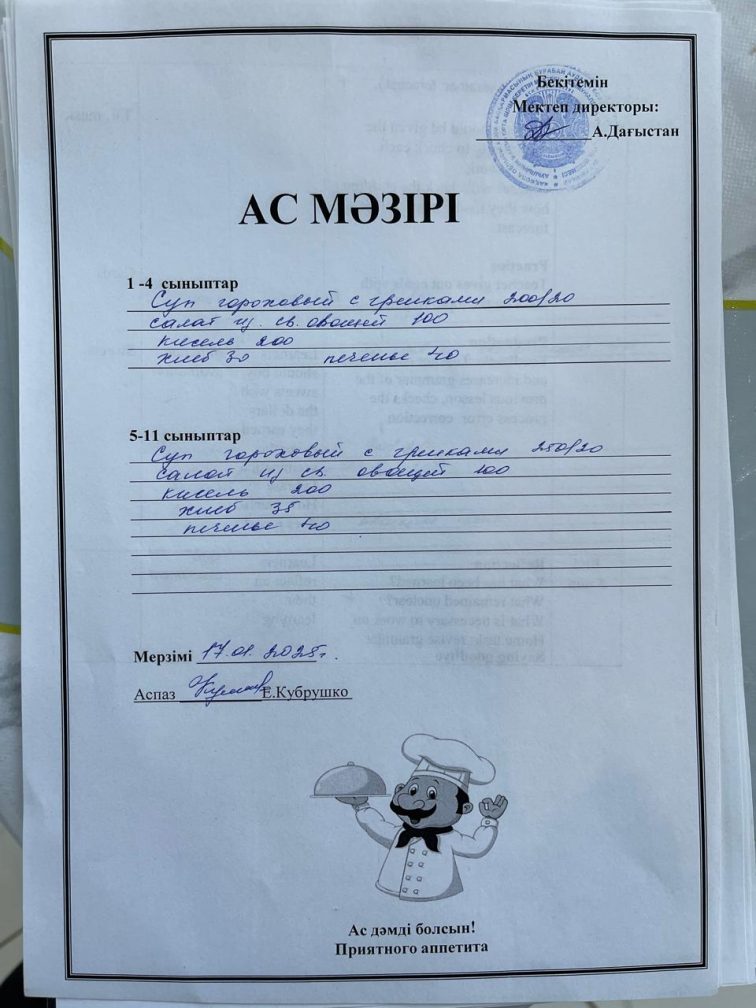 Бекітемін
Мектеп директоры:
А.Дағыстан
АС МӘЗІРІ
1 -4 сыныптар
Суп гороховый с гренками 200/20
салат из св. овощей 100
кисель 200
хлеб 30 печенье 40
5-11 сыныптар
Суп гороховый с гренками 250/20
салат из св овощей 100
кисель 200
хлеб 35
печенье 40
Мерзімі 17.01.2025г.
Аспаз Е.Кубрушко
Ас дәмді болсын!
Приятного аппетита